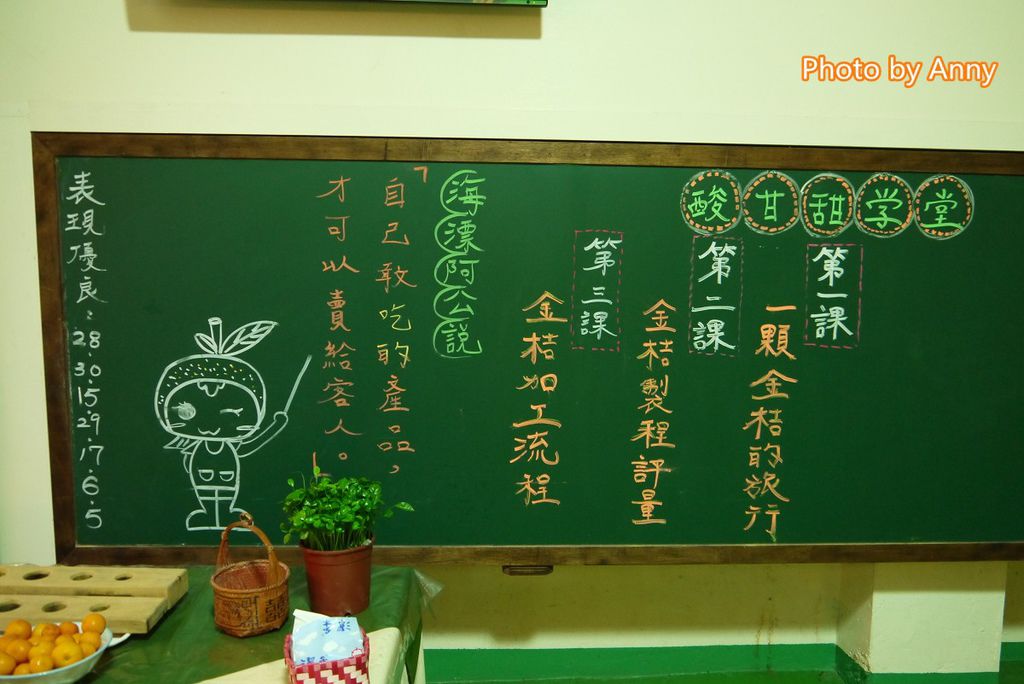 Photo by Anny
酸甘甜学堂
第一課
一顆金桔的旅行
第二課
金桔製程評量
第三課
金桔加工流程
海漂阿公說
「自己敢吃的產品，
才可以賣給客人。
表現優良：28.30.15.29.17.6.5